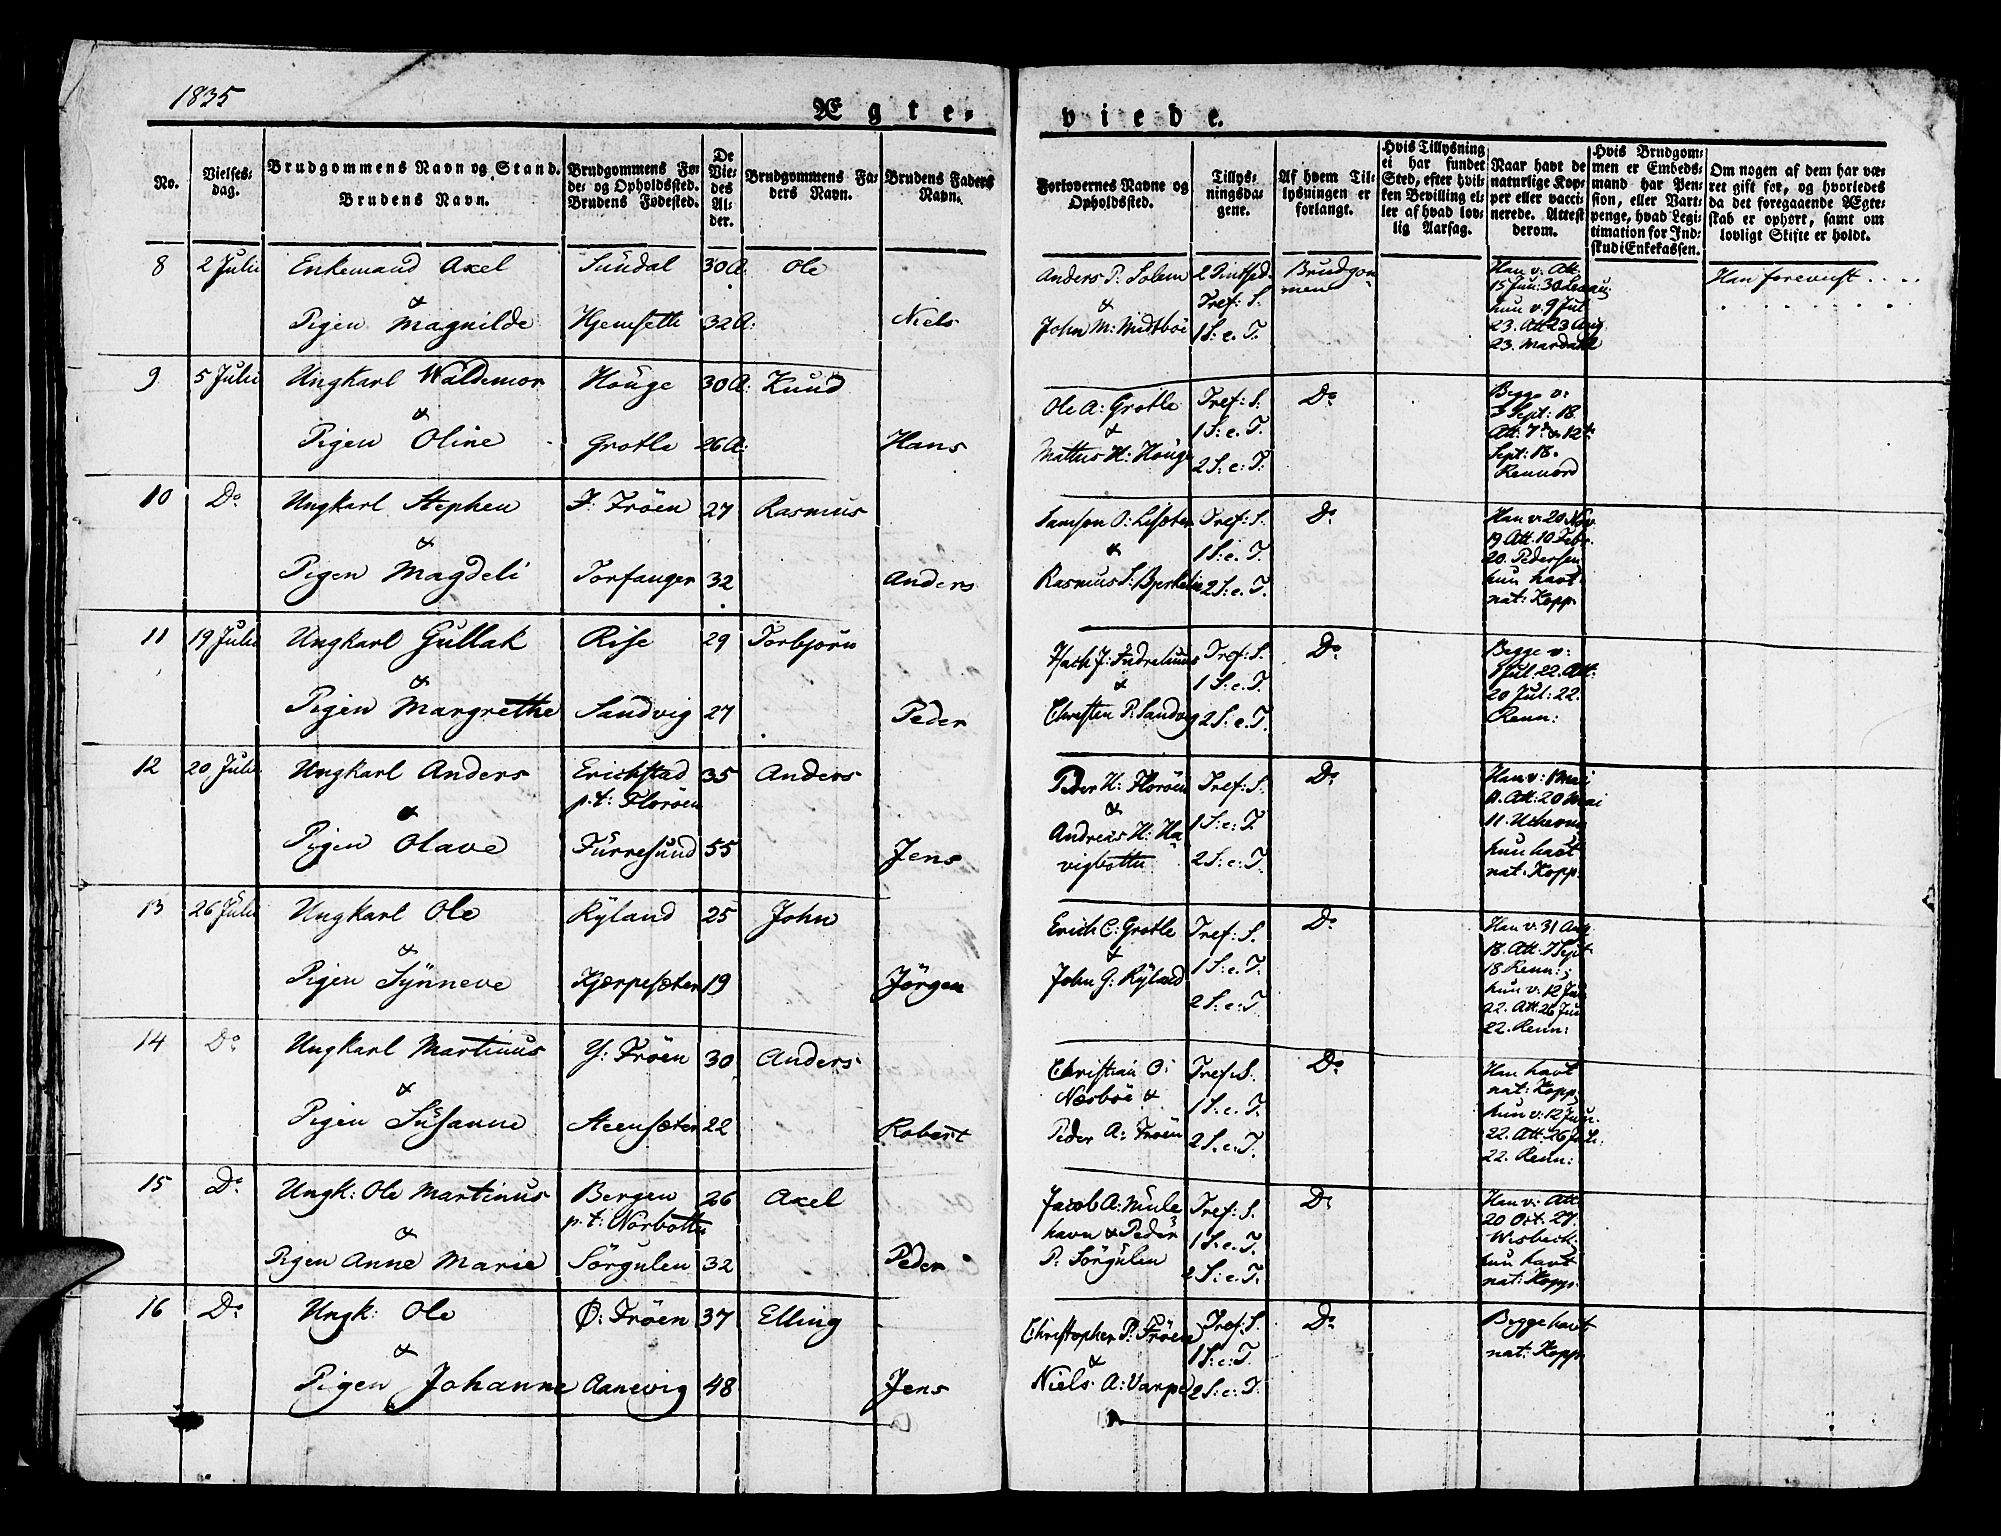 1835
Ægte-
viede.
No.
Vielses-
dag.
Brudgommens Navn og Stand.
Brudens Navn.
Brudgommens Fø-
de- og Opholdssted.
Brudens Fødested.
De
Vie-
des
Al-
der.
Brudgommens Fa-
ders Navn.
Brudens Faders
Navn.
Forlovernes Navne og
Opholdssted.
Tillys-
ningsda-
gene.
Af hvem Til-
lysningen er
forlangt.
Hvis Tillysning
ei har fundet
Sted, efter hvil-
ken Bevilling el-
ler af hvad lov-
lig Aarsag.
Naar havt de
naturlige Kop-
per eller vacci-
nerede. Attest
derom.
Hvis Brudgom-
men er Embeds-
mand har Pen-
sion, eller Vart-
penge, hvad Legi-
timation for Ind-
skud i Enkekassen.
Om nogen af dem har væ-
ret gift før, og hvorledes
da det foregaaende Ægte-
skab er ophørt, samt om
lovligt Skifte er holdt.
8 2 Julii Enkemand Axel Sundal 30 A: Ole
&
Pigen Magnilde Hjemsette 32 A: Niels
Anders P: Solem
&
John M: Midtböe
Tref: S.
1 S: e. T.
Brudgom-
men
Han v: Att.
hun v: 9 Jul.
23. Att 23 Aug
23. Mardahl
Han forevist
9 5 Julii Ungkarl Waldemor Houge 30 A: Knud
&
Pigen Oline Grotle 26 A: Hans
Ole A: Grotle
&
Mattus H: Houge
Tref: S.
1 S: e. T.
2 S: e: T.
Do
Begge v:
3 Sept: 18.
Att: 7de & 12te
Sept: 18.
Rennord
10 Do Ungkarl Stephen J: Fröen 27 Rasmus
&
Pigen Magdeli Torfanger 32 Anders
Samson O: Lisæter
&
Rasmus S: Bjerkelie
Tref: S.
1 S: e. T.
2 S: e. T.
Do
Han v: 20 Nov
19 Att. 10 Febr.
20. Pedersen
hun havt
nat: Kopp.
11 19 Julii Ungkarl Gullak Rise 29 Torbjørn
&
Pigen Margrethe Sandvig 27 Peder
&
Christen P: Sandvig
Tref: S.
1 S: e. T.
2 S: e. T.
Do
Begge v:
Jul. 22. Att.
20 Jul: 22.
Renn:
12 20 Julii Ungkarl Anders Erichstad 35 Anders
p.t: Floröen
&
Pigen Olave Furresund 55 Jens
Peder H: Floröen
&
Andreas H: Ha-
vigbotte
Tref: S.
1 S: e: T.
2 S: e: T.
Do
Han v: 1 Mai
11. Att: 20 Mai
hun havt
nat. Kopp.
13 26 Julii Ungkarl Ole Ryland 25 John
&
Pigen Synneve Kjærpesæter 19 Jörgen
Erich C: Grotle
&
John G: Ryland
Tref: S.
1 S: e. T.
2 S: e: T.
Do
Han v: 31 Aug
18. Att: 7 Sept
18 Renn:
hun v: 12 Jul
22. Att: 26 Jul
22. Renn:
14 Do Ungkarl Martinus Y: Fröen 30 Anders
&
Pigen Susanne Steensæter 22 Robert
Christian O:
Næsböe &
Peder A: Fröen
Tref: S.
1 S: e. T.
2 S: e. T.
Do
Han havt
nat: Kopp
hun v: 12 Jul.
22. Att: 26 Jul.
22. Renn:
15 Do Ungk: Ole Martinus Bergen 26 Axel
p.t: Norbotte
&
Pigen Anne Marie Sörgulen 32 Peder
Jacob A: Mule
havn & Peder
P: Sörgulen
Tref: S.
1 S: e. T.
2 S: e. T.
Do
Han v: Att
20 Oct: 27.
Wisbeck.
hun havt
nat: Kopp.
16 Do Ungk: Ole Ø: Fröen 37 Elling
&
Pigen Johanne Aanevig 48 Jens
Christopher P: Fröen
&
Niels A: Varpe
Tref: S.
1 S: e: T.
2 S: e: T.
Do
Begge havt
nat: Kopp